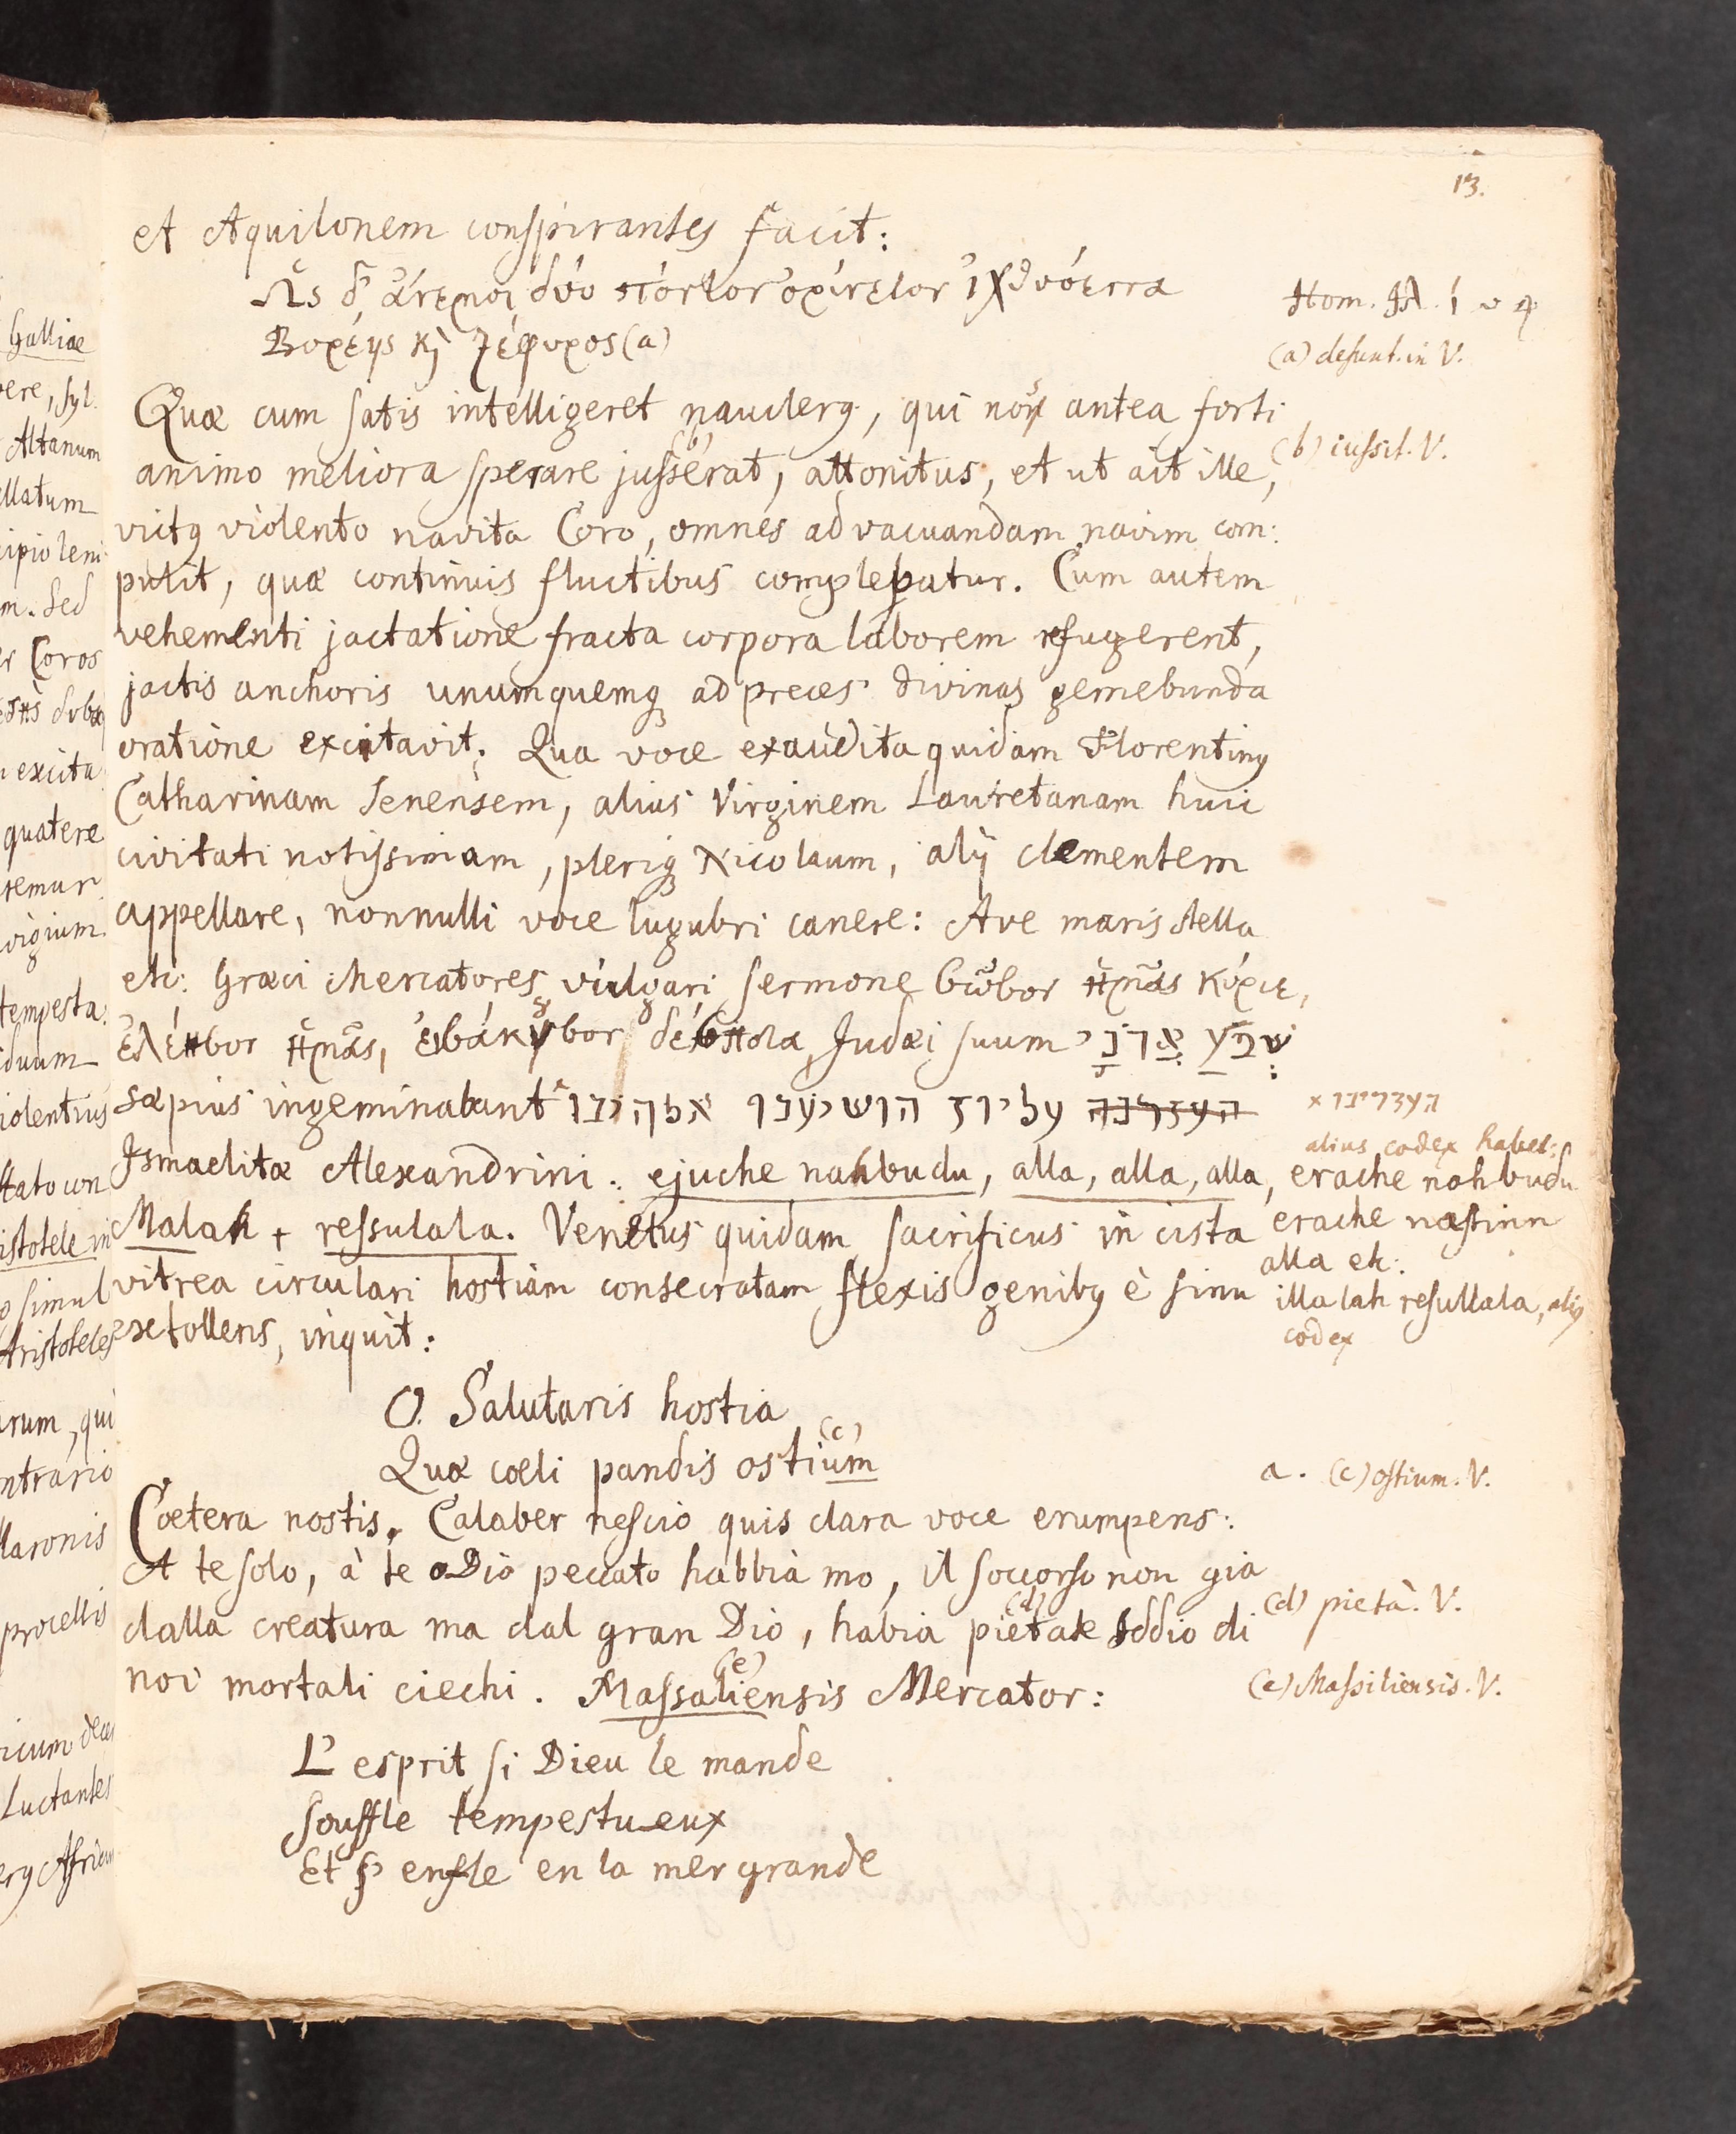 13.
et Aquilonem conspirantes facit:
Ὡς δ' ἄνεμοι δύο πόντον ὀρίνετον ἰχθυόεντα
Βορέης κὶ ζέφυρος (a)
Hom. Ιλ. ί
(a) desunt. in V.
Quæ cum satis intelligeret nauclerꝰ, qui nos antea forti
animo meliora sperare jusserat (b), attonitus, et ut ait ille,
(b) iussit. V.
victꝰ violento navita Coro, omnes ad vacuandam navim com:
pulit, quæ continuis fluctibus complebatur. Cum autem
vehementi jactatione fracta corpora laborem refugerent,
jactis anchoris unumquemq ad preces divinas gemebunda
oratione excitavit; Qua voce exaudita quidam Florentinꝰ
Catharinam Senensem, alius Virginem Lauretanam huic
civitati notissimam, pleriq Nicolaum, alij clementem
appellare, nonnulli voce lugubri canere: Ave maris stella
etc: Græci Mercatores vulgari sermone σῶσον ἡμᾶς κύριε,
ἐλέησον ἡμᾶς, Judæi suum אֲדֹנָי
sæpius ingeminabant אלהינו הושיענו עליון
x העצריבו
alius codex habet:
Ismaelitæ Alexandrini: ejuche nahbudu, alla, alla, alla,
erache nahbudu
Malah + ressulala. Venetus quidam sacrificus in cista
erache nastinn
alla etc:
vitrea circulari hostiam consecratam flexis genibꝰ è sinu
illalah resullala, aliꝰ
codex
extollens, inquit:
O. Salutaris hostia
Quæ cœli pandis ostium (c)
a. (c) ostium. V.
Cœtera nostis. Calaber nescio quis clara voce erumpens:
A te solo, à te o Dio peccato habbia mo, il soccorso non gia
dalla creatura ma dal gran Dio, habia pietate (d) Iddio di
(d) pietà. V.
noi mortali ciechi. Massaliensis (e) Mercator:
(e) Massiliensis. V.
L' esprit si Dieu le mande
Souffle tempestueux
Et s' enfle en la mer grande